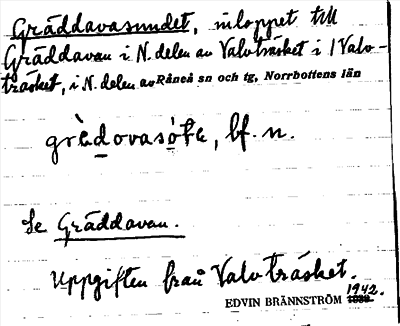 Gräddavasundet, inloppet till
Gräddavan i N. delen av Valvträsket i /Valv-
träsket, i N. delen av Råneå sn och tg, Norrbottens län
grèdovasóte, bf. n.
Se Gräddavan.
Uppgiften från Valvträsket.
1942.
EDVIN BRÄNNSTRÖM